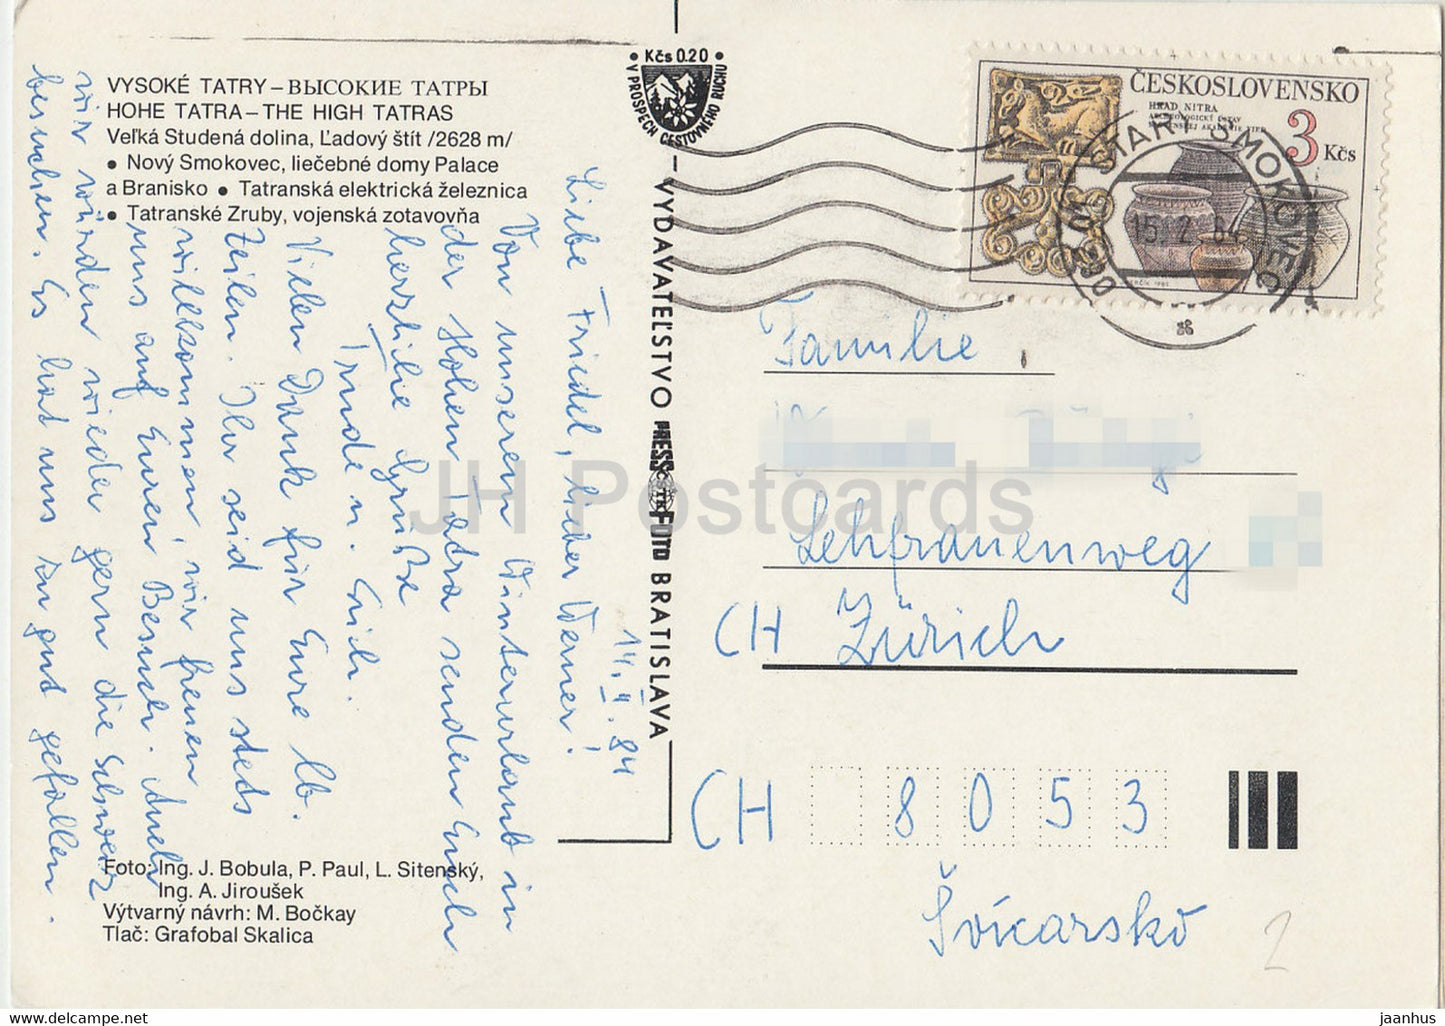 VYSOKÉ TATRY – ВЫСОКИЕ ТАТРЫ
HOHE TATRA – THE HIGH TATRAS
Veľká Studená dolina, Ľadový štít /2628 m/
• Nový Smokovec, liečebné domy Palace
a Branisko • Tatranská elektrická železnica
• Tatranské Zruby, vojenská zotavovňa
Foto: Ing. J. Bobula, P. Paul, L. Sitenský,
Ing. A. Jiroušek
Výtvarný návrh: M. Bočkay
Tlač: Grafobal Skalica
• Kčs 0.20 •
V PROSPECH CESTOVNÉHO RUCHU
VYDAVATEĽSTVO PRESSFOTO BRATISLAVA
14.II.84
Liebe Friedel, lieber Werner!
Von unserem Winterurlaub in
der Hohen Tatra senden Euch
herzliche Grüße
Trude u. Erich.
Vielen Dank für Eure lb.
Zeilen. Ihr seid uns stets
willkommen, wir freuen
uns auf Euren Besuch. Auch
wir würden wieder gern die Schweiz
besuchen. Es hat uns so gut gefallen.
ČESKOSLOVENSKO
HRAD NITRA
ARCHEOLOGICKÝ ÚSTAV
SLOVENSKEJ AKADÉMIE VIED
3 Kčs
STARÝ SMOKOVEC
15. 2. 84
Familie
Lehfrauenweg
CH Zürich
CH 8053
Švícarsko
2
JH Postcards
jaanhus.com